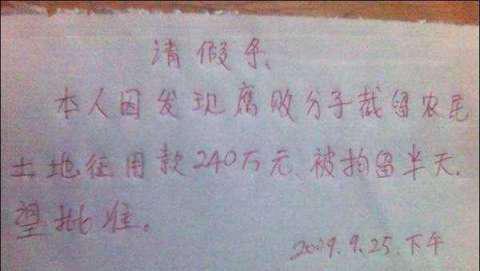 请假条
本人因发现腐败分子截留农民
土地征用款240万元、被拘留半天.
望批准。
2009.9.25.下午